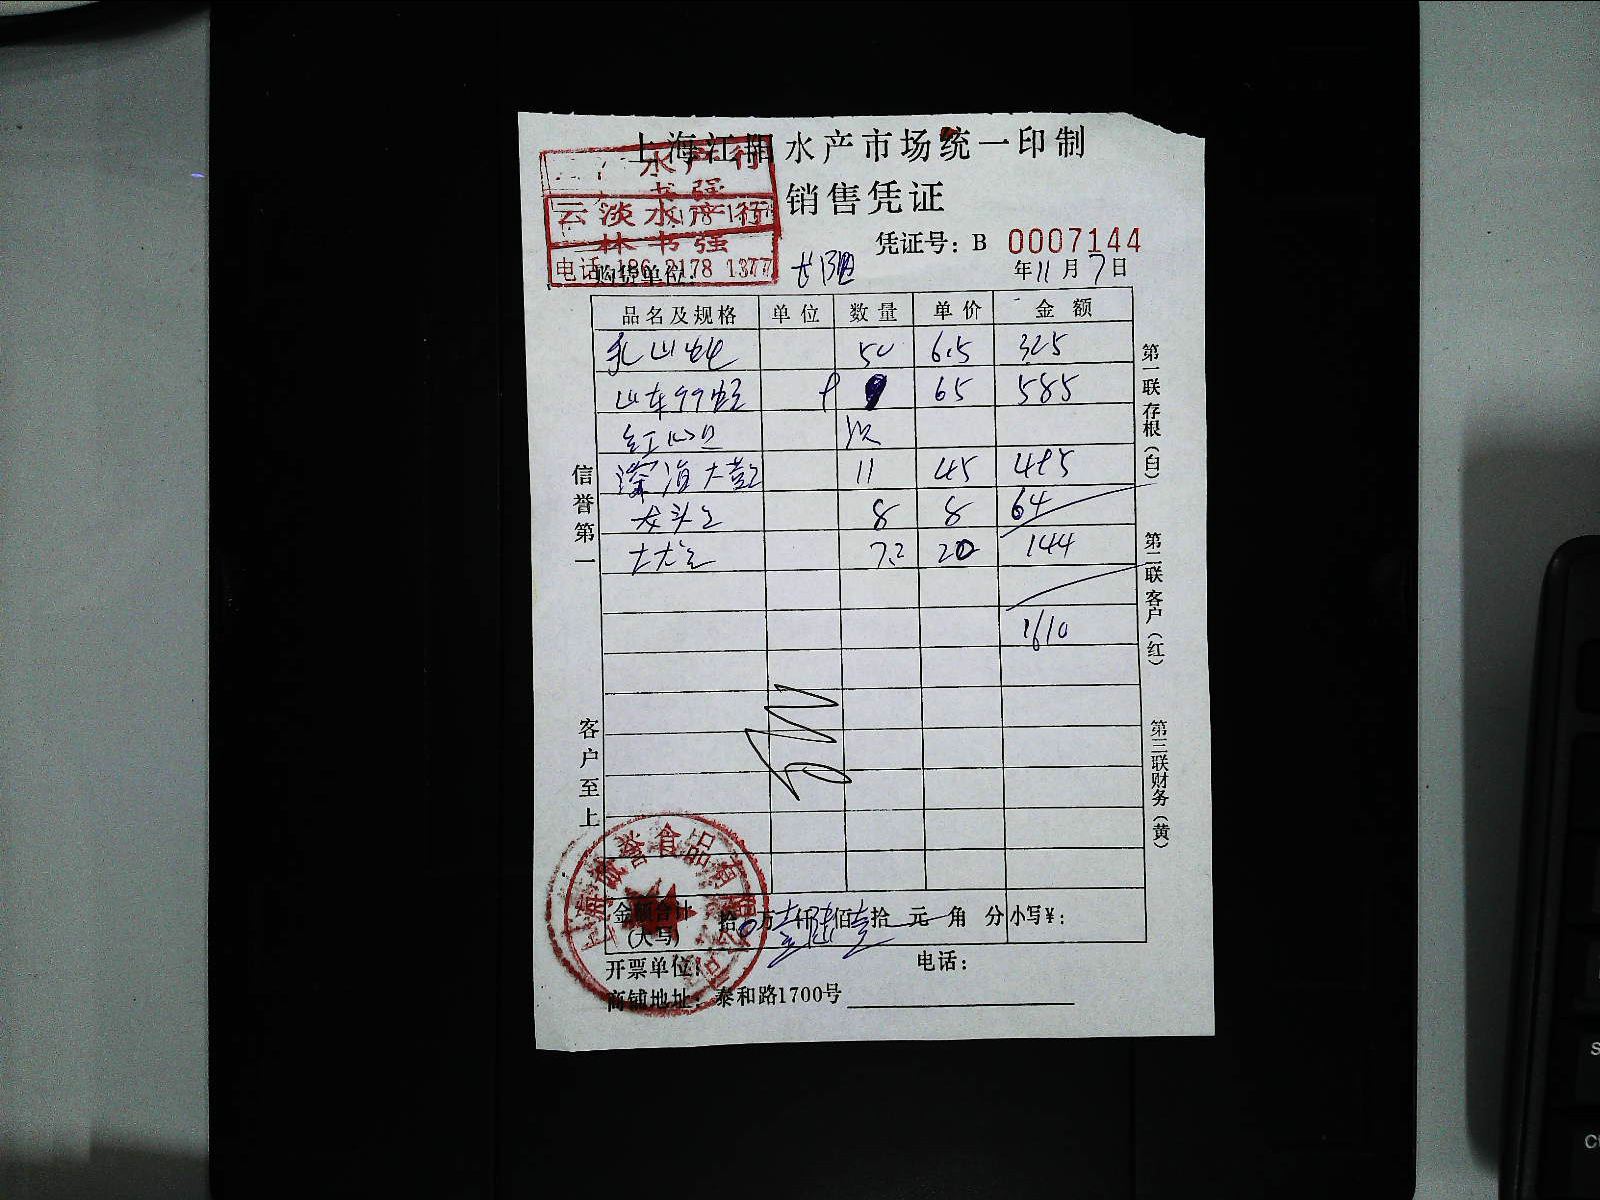 上海江阳水产市场统一印制
销售凭证
云淡水产行
林书强
电话 186 2178 1377
凭证号：B 0007144
购货单位：
年11月7日
品名及规格 单位 数量 单价 金额
乳山 50 6.5 325
山东 9 65 585
红
深海大 11 45 495
龙头 8 8 64
20 144
1610
信誉第一
客户至上
第一联存根（白）
第二联客户（红）
第三联财务（黄）
金额合计（大写） 拾0万壹仟陆佰壹拾 元 角 分 小写¥：
开票单位： 电话：
商铺地址：泰和路1700号
上海诚誉食品有限公司